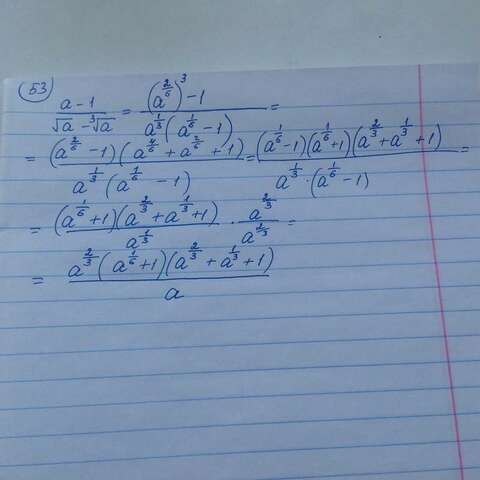 53
(a-1)/(√a - ∛a) = ((a^(2/6))^3 - 1)/(a^(1/3)(a^(1/6) - 1)) =
= ((a^(2/6) - 1)(a^(4/6) + a^(2/6) + 1))/(a^(1/3)(a^(1/6) - 1)) = ((a^(1/6) - 1)(a^(1/6) + 1)(a^(2/3) + a^(1/3) + 1))/(a^(1/3) · (a^(1/6) - 1)) =
= ((a^(1/6) + 1)(a^(2/3) + a^(1/3) + 1))/a^(1/3) · a^(2/3)/a^(2/3) =
= (a^(2/3)(a^(1/6) + 1)(a^(2/3) + a^(1/3) + 1))/a